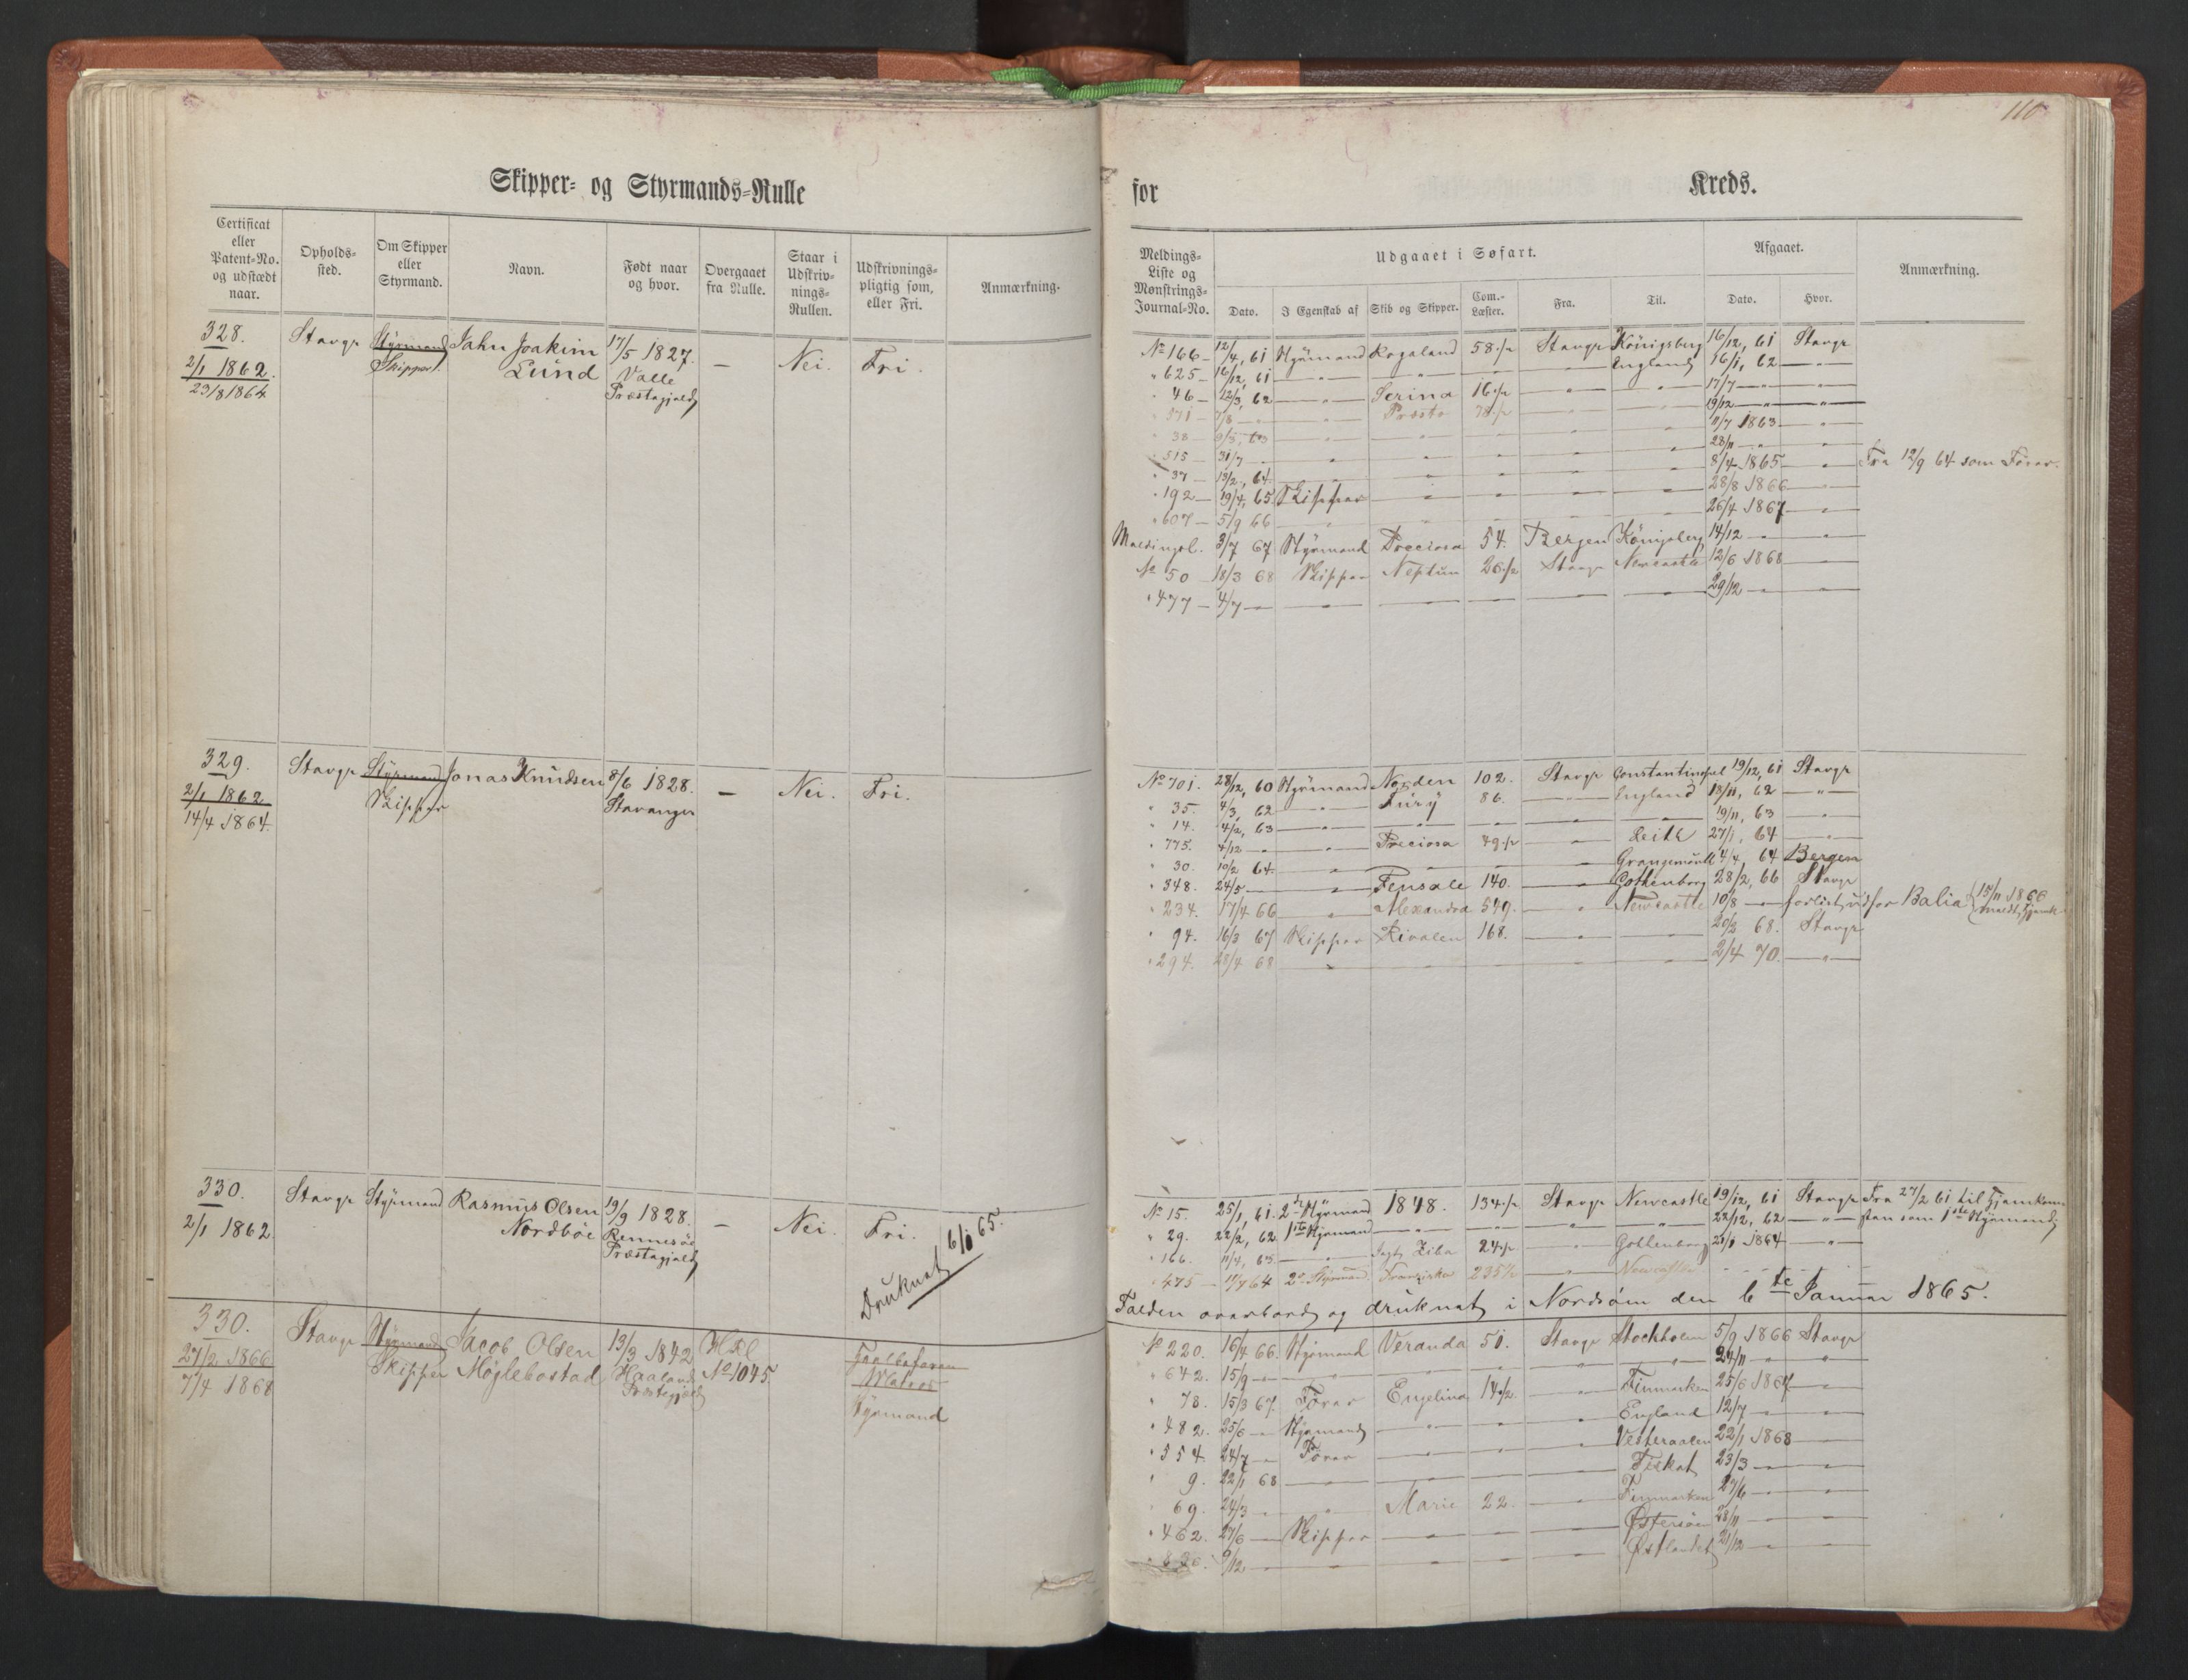 110
Skipper- og Styrmands-Rulle
for Kreds.
Certificat eller Patent-No. og udstædt naar.
Opholds-sted.
Om Skipper eller Styrmand.
Navn.
Født naar og hvor.
Overgaaet fra Rulle.
Staar i Udskriv-nings-Rullen.
Udskrivnings-pligtig som, eller Fri.
Anmærkning.
Meldings-Liste og Mønstrings-Journal-No.
Udgaaet i Søfart.
Dato.
I Egenskab af
Skib og Skipper.
Com.-Læster.
Fra.
Til.
Afgaaet.
Dato.
Hvor.
Anmærkning.
328. Stavgr Styrmand Jahn Joakim 17/5 1827. — Nei. Fri.
2/1 1862. Skipper. Lund Valle
23/8 1864. Præstegjeld
No 166 — 12/4, 61 Styrmand Rogaland 58 Stavgr Königsberg 16/12, 61 Stavgr
" 625 — 16/12, 61 — " — England 16/1, 62 — " —
" 46 — 12/3, 62 — " — Serina 16 17/7 — " —
" 571 — 7/8 — " — Præsto 78 19/12 — " —
" 38 — 9/3, 63 11/7 1863 — " —
" 515 — 31/7 — " — 28/11 — " —
" 37 — 13/2, 64 8/4 1865 — " — Fra 12/9 64 som Fører.
" 192 — 19/4, 65 Skipper 28/8 1866 — " —
" 607 — 5/9 66 26/4 1867 — " —
Meldingsl. 3/7 67 Styrmand Preciosa 54. Bergen Königsberg 14/12 — " —
No 50 — 18/3 68 Skipper Neptun 26 Stavgr Newcastle 12/6 1868 —
" 477 — 4/7 — " — 29/12 — " —
329. Stavgr Styrmand Jonas Knudsen 8/6 1828. — Nei. Fri.
2/1 1862 Skipper Stavanger
14/4 1864.
No 701. 28/12, 60 Styrmand Norden 102. Stavgr Constantinopel 19/12, 61 Stavgr
" 35. 4/3, 62 — " — Fury 86. — " — England 18/11, 62 — " —
" 14. 4/2, 63 — " — 19/11, 63 — " —
" 775. 4/12 — " — Preciosa 49 — " — Leith 27/1, 64 — " —
" 30. 10/2 64. — " — Grangemouth 4/4, 64 Bergen
" 348. 24/5 — " — Fensale 140. — " — Gothenborg 28/2, 66 Stavgr
" 234. 17/4 66 — " — Alexandra 549. — " — Newcastle 10/8 — forlist udfor Balia 15/11 1866
" 94. 16/3 67 Skipper Rivalen 168. — " — 20/2 68. Stavgr
" 294. 28/4 68 — " — 2/4 70. — " —
330. Stavgr Styrmand Rasmus Olsen 19/9 1828. — Nei. Fri.
2/1 1862 Nordböe Rennesöe
Præstegjeld
Druknet 6/1 65.
No 15. 25/1, 61. 2den Styrmand 1848. 134 Stavgr Newcastle 19/12, 61 Stavgr Fra 27/2 61 til Hjemkom-
" 29. 22/2, 62 1ste Styrmand — " — 22/12, 62 — " — sten som 1ste Styrmand
" 166. 11/4, 63 — " — Jagt Ziba 24 — " — Gothenborg 21/1 1864 — " —
" 475 — 11/7 64 2den Styrmand Franziska 235 — " — Newcastle
Falden overbord og druknet i Nordsöen den 6te Januar 1865.
330. Stavgr Styrmand Jacob Olsen 13/3 1842 Htl
27/2 1866 Skipper Möglebostad Haaland No 1045
7/4 1868 Præstegjeld
Matros
Styrmand
No 220. 16/4 66. Styrmand Veranda 51. Stavgr Stockholm 5/9 1866 Stavgr
" 642. 15/9 — " — 24/11 — " —
" 78. 15/3 67. Förer Engelina 14 — " — Finmarken 25/6 1867 —
" 482. 25/6 — Styrmand — " — England 12/7 — " —
" 554. 24/7 — Förer — " — Vesteraalen 22/1 1868 —
" 9. 22/1 68 — " — Fiskat 23/3 — " —
" 69. 24/3 — " — Marie 22. — " — Finmarken 27/6 — " —
" 462. 27/6 — Skipper — " — Østersøen 28/11 — " —
" 836. 9/12 — " — Østlandet 21/12 — " —